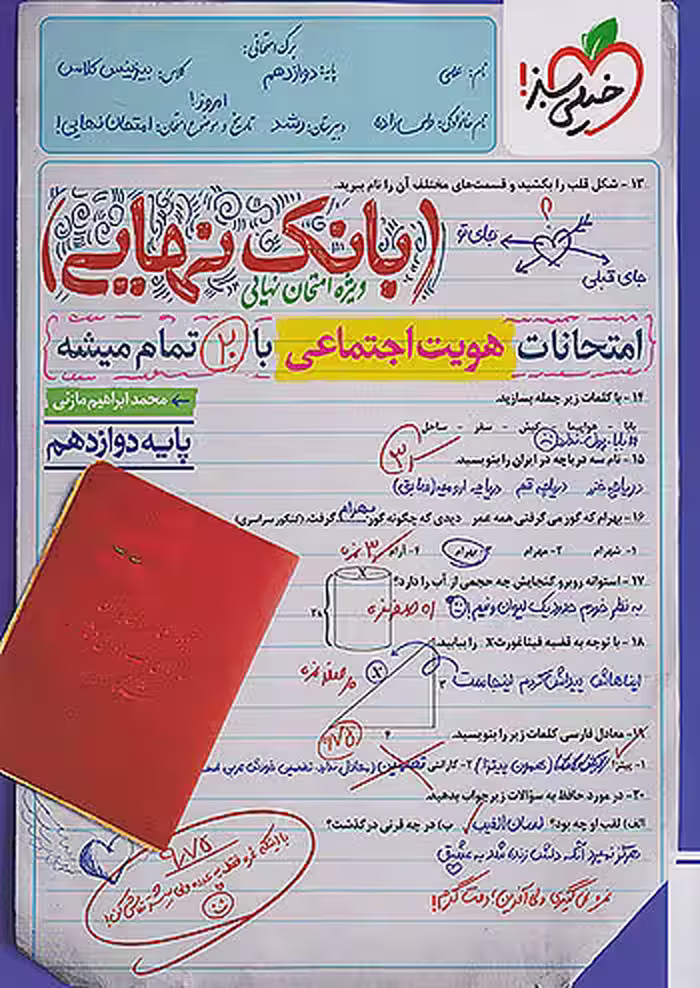 برگ امتحانی:
نام: علی
پایه: دوازدهم
کلاس: بیزینس کلاس
امروز!
نام خانوادگی: ولی زاده
دبیرستان: رشد
تاریخ و موضوع امتحان: امتحان نهایی!
خیلی سبز!
۱۳- شکل قلب را بکشید و قسمت‌های مختلف آن را نام ببرید.
جای تو
جای قبلی
(بانک نهایی)
ویژه امتحان نهایی
امتحانات هویت اجتماعی با ۲۰ تمام میشه
محمد ابراهیم مازنی
پایه دوازدهم
۱۴- با کلمات زیر جمله بسازید.
بابا - هواپیما - کیش - سفر - ساحل
بابا پول ندارد
۳
۱۵- نام سه دریاچه در ایران را بنویسید.
دریاچه خزر دریاچه قم دریاچه ارومیه (سابق)
۱۶- بهرام که گور می‌گرفتی همه عمر دیدی که چگونه گور بهرام گرفت. (کنکور سراسری)
۱- شهرام ۲- مهرام ۳- بهرام ۴- آرام
۳ نمره
۱۷- استوانه روبرو گنجایش چه حجمی از آب را دارد؟
X
2x
به نظر خودم حدود یک لیوان و نیم
صفر نمره
۱۸- با توجه به قضیه فیثاغورث X را بیابید.
ایناهاش پیداش کردم اینجاست
X
۳
۴
۹/۷۵
۱۹- معادل فارسی کلمات زیر را بنویسید.
۱- پیتزا
۲- گارانتی
۲۰- در مورد حافظ به سؤالات زیر جواب بدهید.
الف) لقب او چه بود؟ لسان الغیب ب) در چه قرنی درگذشت؟
هرگز نمیرد آنکه دلش زنده شد به عشق
۹/۷۵